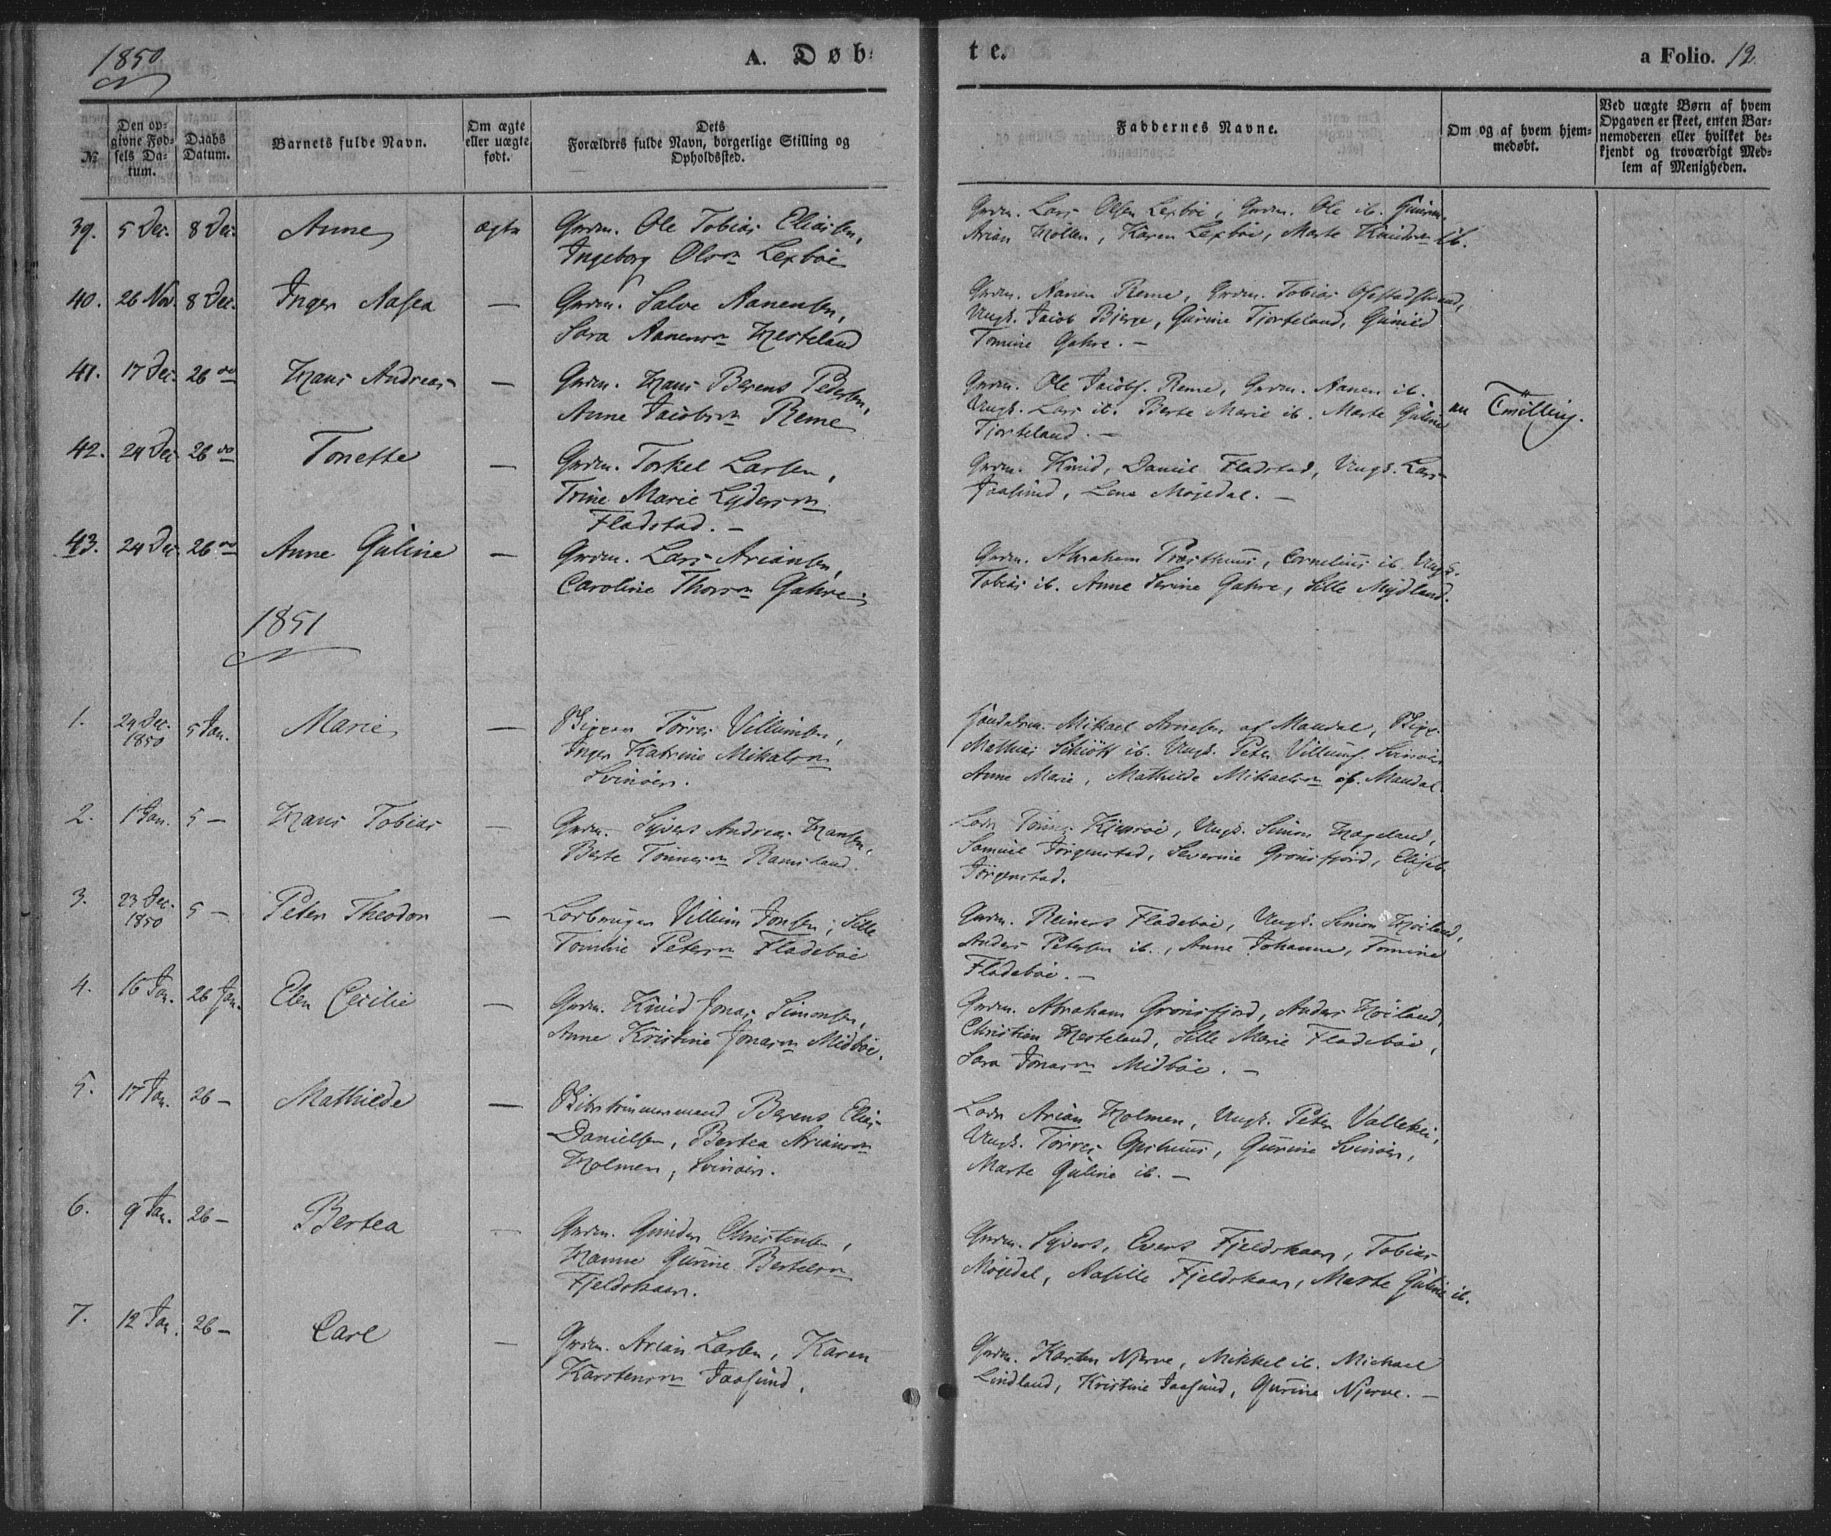 1850
A. Døbte.
a Folio. 12
No
Den opgivne Fødsels Datum.
Daabs Datum.
Barnets fulde Navn.
Om ægte eller uægte født.
Dets Forældres fulde Navn, borgerlige Stilling og Opholdssted.
Faddernes Navne.
Om og af hvem hjemmedøbt.
Ved uægte Børn af hvem Opgaven er skeet, enten Barnemoderen eller hvilket bekjendt og troværdigt Medlem af Menigheden.
39. 5 Dec. 8 Dec. Anne ægte Gmdm. Ole Tobias Eliasen,
Ingeborg Olsen Lexbøe
Gmdm. Lars Olsen Lexbøe, Gmdm. Ole ib.
Arian Holten, Karen Lexbøe, Marte ib.
40. 26 Nov. 8 Dec. Inger Aasea — Gmdm. Salve Aanensen,
Sara Aanensen Hesteland
Gmdm. Aanen Reme, Gmdm. Tobias
Ungk. Jacob Bjerge, Gurine Tjorteland, Gunild
Tomine Gahre. —
41. 17 Dec. 26 do Hans Andreas — Gmdm. Hans Berent Pedersen,
Anne Jacobsen Reme
Gmdm. Ole Jacobs. Reme, Gmdm. Aanen ib.
Ungk. Lars ib. Berte Marie ib. Marte Guline
Tjorteland. —
en Tvilling.
42. 24 Dec 26 do Tonette — Gmdm. Torkel Larsen,
Trine Marie Lydersen
Fladstad. —
Gmdm. Knud, Daniel Fladstad, Ungk. Lars
Jaasund, Lena Møgedal. —
43. 24 Dec 26 do Anne Guline — Gmdm. Lars Ariansen,
Caroline Thorsen Gahre.
Gmdm. Abraham Præsthuus, Cornelius ib. Ungk.
Tobias ib. Anne Serine Gahre, Sille Mydland.
1851
1. 24 Dec. 1850 5 Jan. Marie — Skipper Tørres Villumsen,
Inger Katrine Mikalsen
Svinøer.
Mikael Arnesen af Mandal, Skipp.
Mathias Schiøtt ib. Ungk. Peter Villums. Svinøer
Anne Marie, Mathilde Mikaelsen af Mandal.
2. 1 Jan. 5 — Hans Tobias — Gmdm. Syvert Andreas Hansen,
Berte Tønnesen Ramsland.
Lods Tønnes Ungk. Simon Hageland,
Samuel Jørgenstad, Severine Grønsfjord, Elisab.
Jørgenstad.
3. 23 Dec. 1850 5 — Peter Theodor — Lodbruger Villum Jonsen, Sille
Tomine Petersen Fladebøe
Gmdm. Reinert Fladebøe, Ungk. Simon Høiland,
Anders Petersen ib., Anne Johanne, Tomine
Fladebøe. —
4. 16 Jan. 26 Jan. Elen Cecilie — Gmdm. Knud Jonas Simonsen,
Anne Kristine Jonasen Midbøe.
Gmdm. Abraham Grønsfjord, Anders Høiland,
Christian Hesteland, Sille Marie Fladebøe,
Sara Jonasen Midbøe. —
5. 17 Jan. 26 — Mathilde — Skibstømmermand Berent Elias
Danielsen, Bertea Ariansen
Holmen, Svinøer.
Lods Arian Holmen, Ungk. Peter
Ungk. Tørres Opshuus, Gurine Svinøer,
Marte Guline ib. —
6. 9 Jan. 26 — Bertea — Gmdm. Gunder Christensen,
Hanne Gurine Bertelsen
Fjeldskaar.
Gmdm. Syvert, Evert Fjeldskaar, Tobias
Møgedal, Aasille Fjeldskaar, Marte Guline ib.
7. 12 Jan. 26 — Carl — Gmdm. Arian Larsen, Karen
Karstensen Jaasund.
Gmdm. Karsten Njerve, Mikkel ib. Michael
Lindland, Kristine Jaasund, Gurine Njerve. —